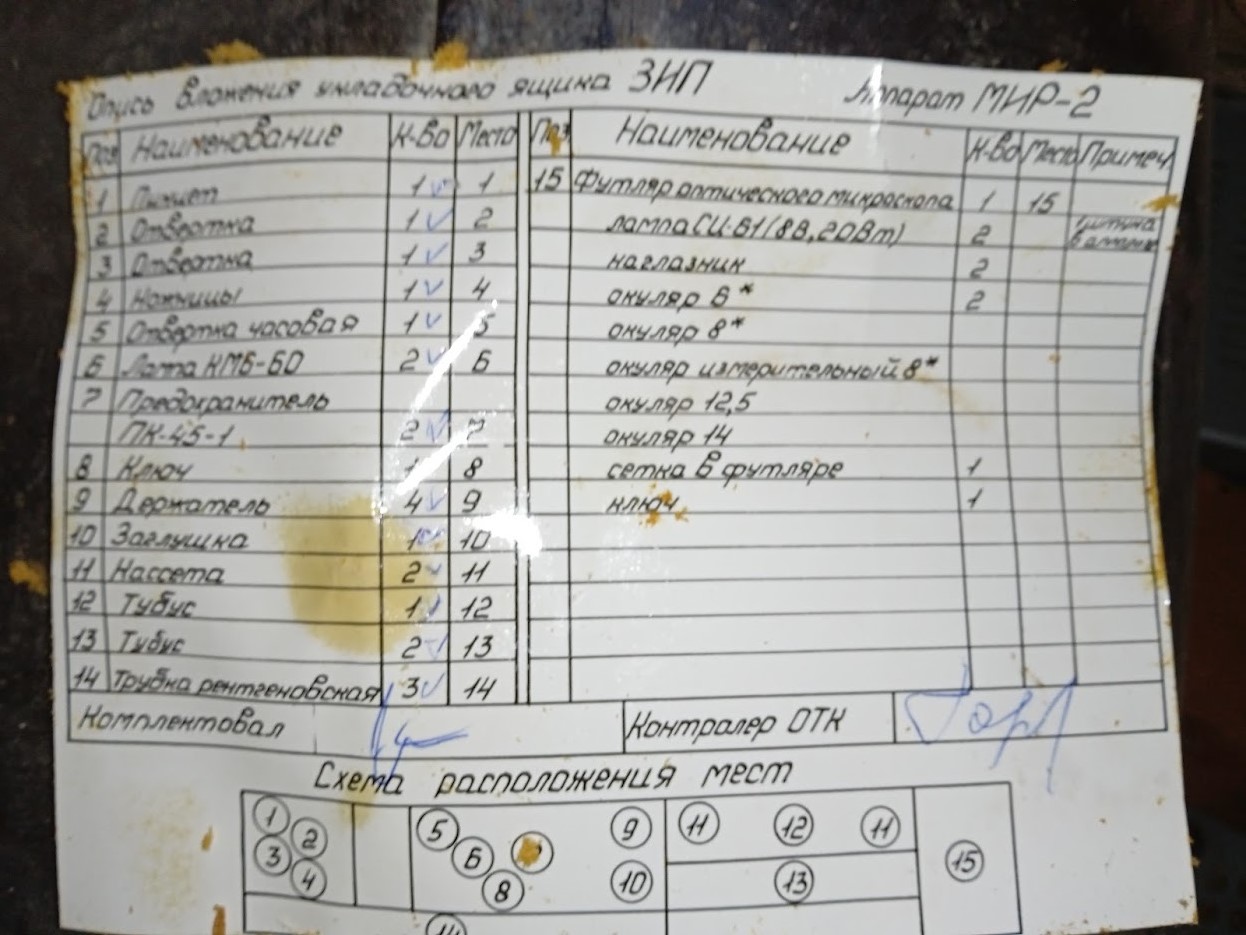 Опись вложения укладочного ящика ЗИП Аппарат МИР-2
Поз Наименование К-во Место Поз Наименование К-во Место Примеч
1 Пинцет 1 1 15 Футляр оптического микроскопа 1 15
2 Отвертка 1 2 лампа СЦ-61 (8В, 20Вт) 2 1 штука
3 Отвертка 1 3 наглазник 2
4 Ножницы 1 4 окуляр 6* 2
5 Отвертка часовая 1 5 окуляр 8*
6 Лампа КМ6-60 2 6 окуляр измерительный 8*
7 Предохранитель окуляр 12,5
ПК-45-1 2 7 окуляр 14
8 Ключ 1 8 сетка в футляре 1
9 Держатель 4 9 ключ 1
10 Заглушка 1 10
11 Кассета 2 11
12 Тубус 1 12
13 Тубус 2 13
14 Трубка рентгеновская 3 14
Комплектовал Контралер ОТК
Схема расположения мест
1 2 3 4 5 6 8 9 10 11 12 11 13 15
14